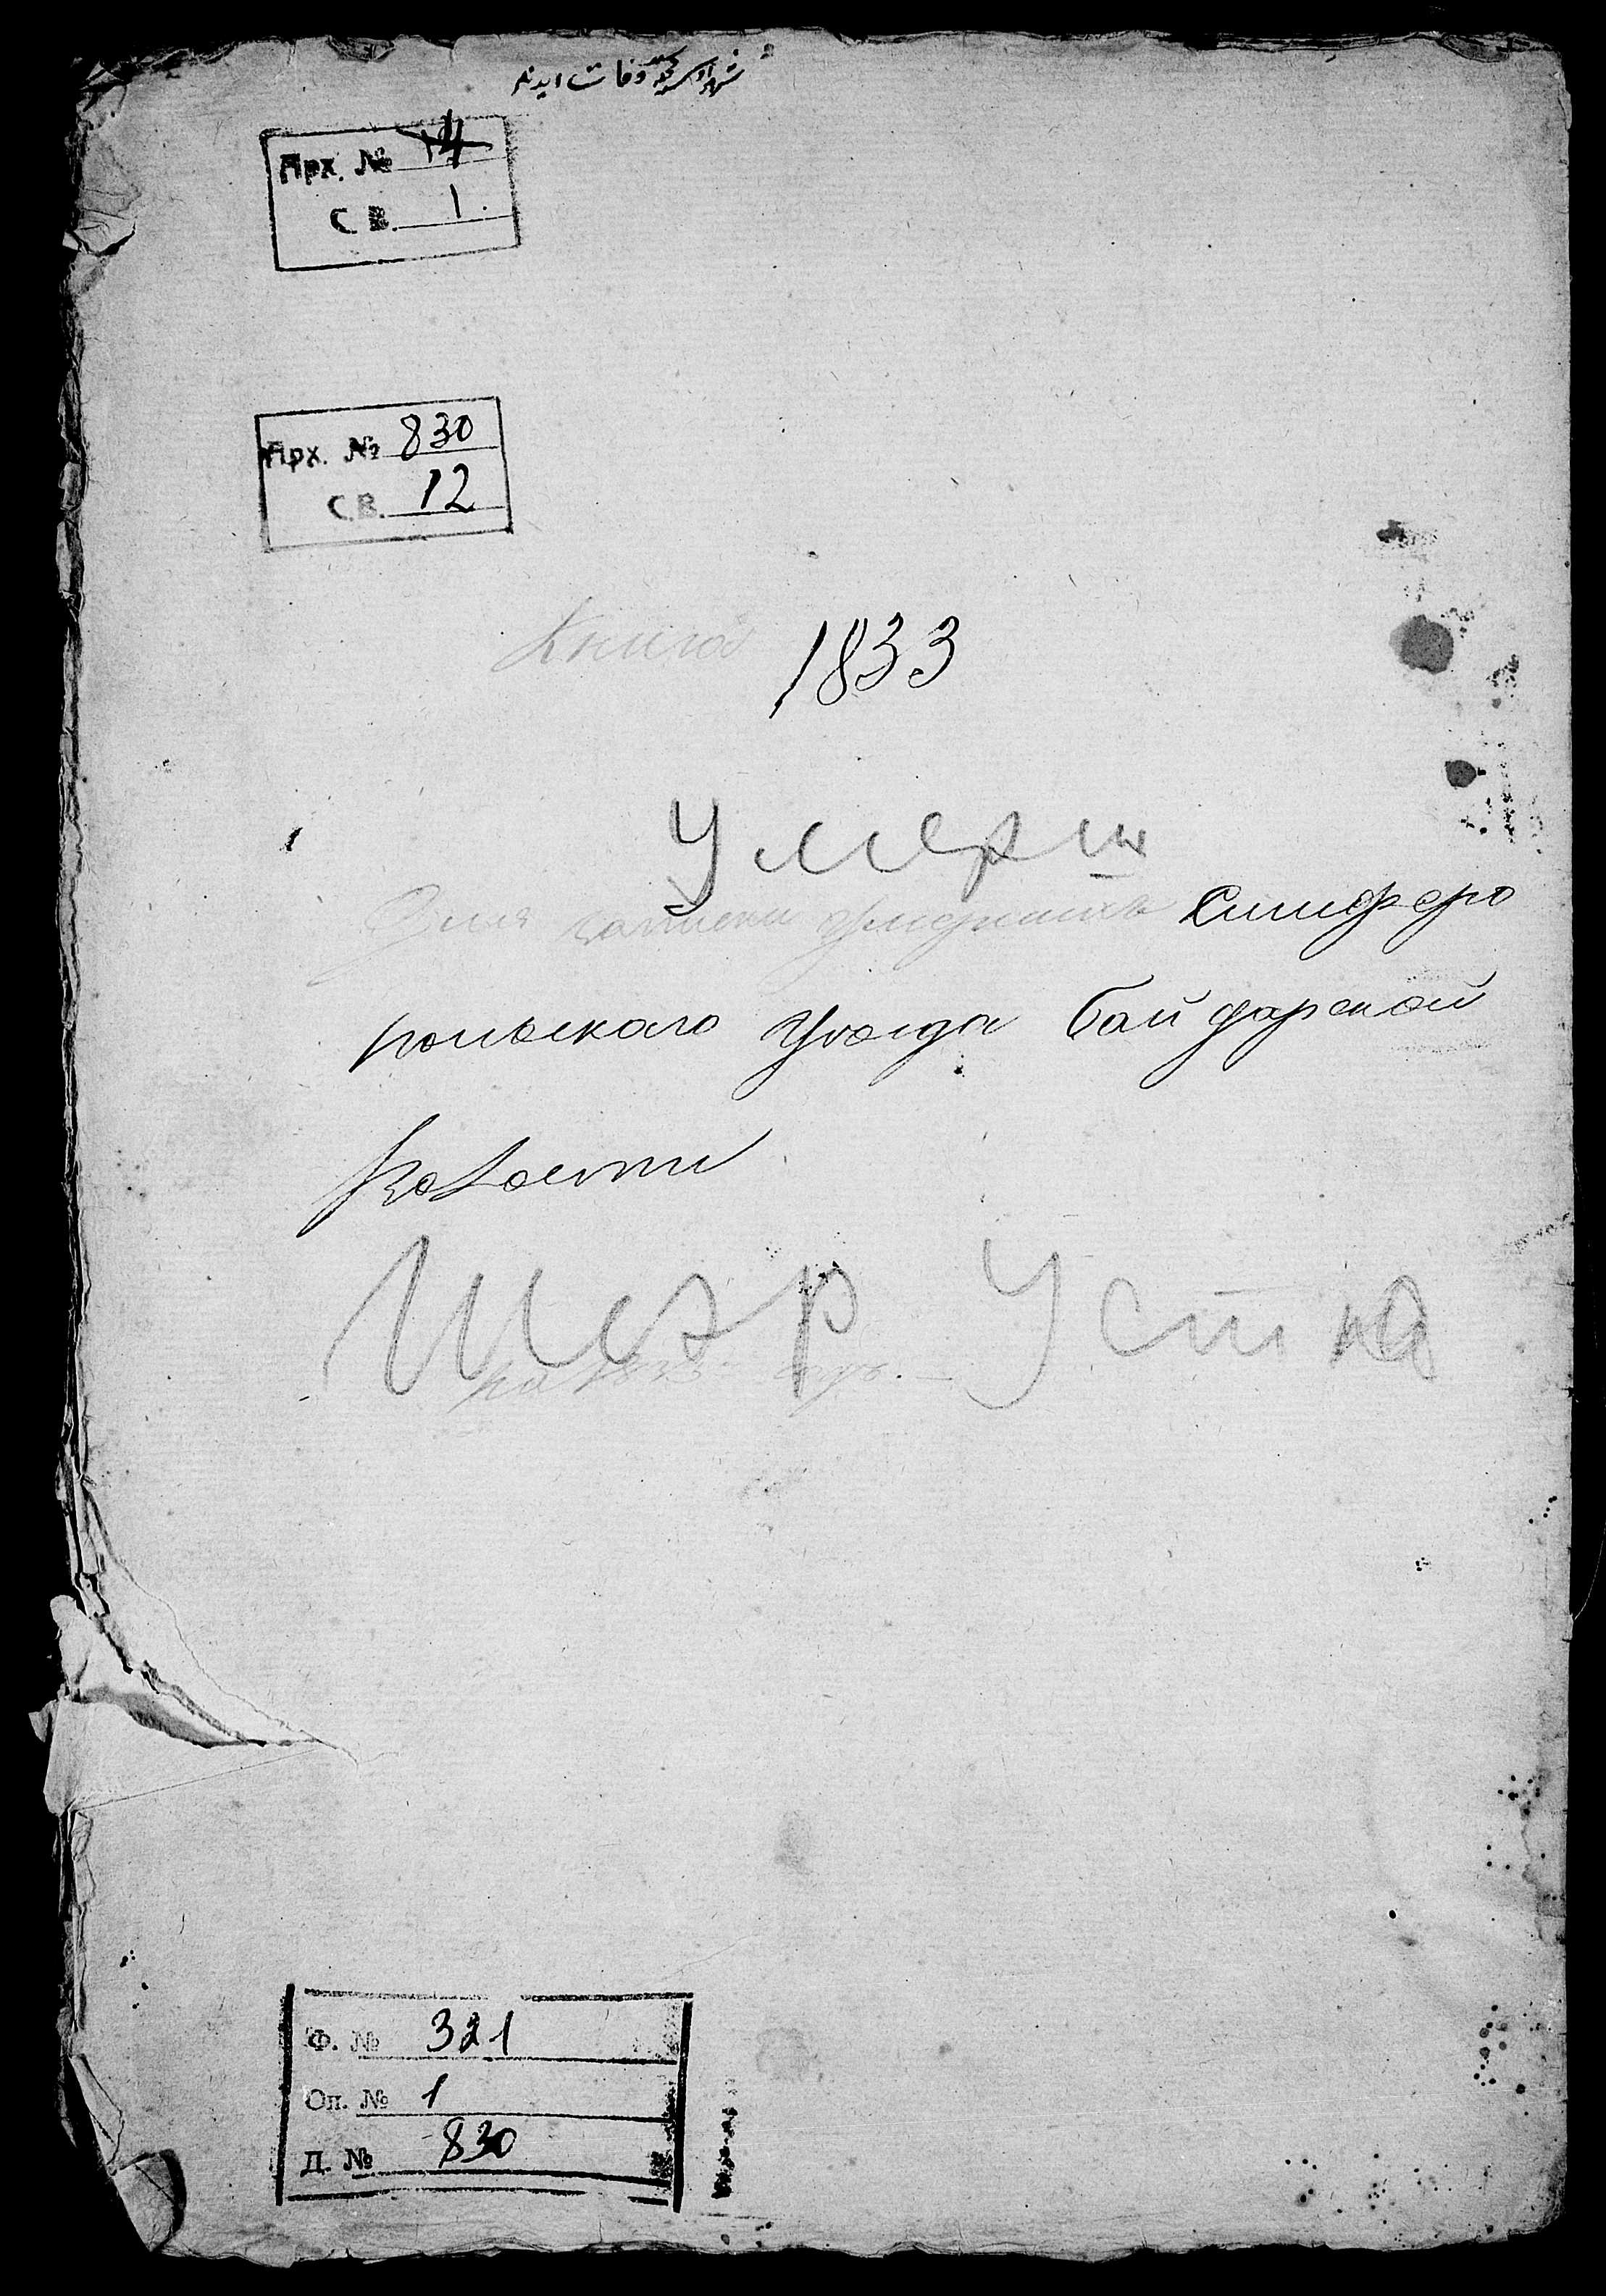 Арх. № 14
С.В. 1.
Арх. № 830
С.В. 12
Книга 1833
Умерш
Для записки умершихъ Симферо
польскаго Уѣзда Байдарской
Волости
Шар Уста
годъ.
Ф. № 321
Оп. № 1
Д. № 830